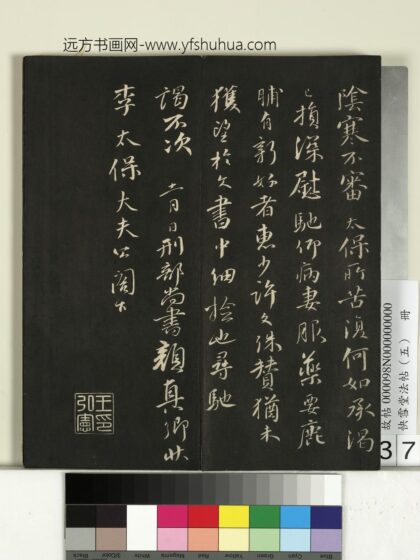 远方书画网-www.yfshuhua.com
陰寒不審 太保所苦復何如承渴
已損深慰馳仰病妻服藥要鹿
脯有新好者惠少許文殊贊猶未
獲望於文書中細撿也尋馳
謁不次 月日刑部尚書顏真卿狀
李太保大夫公閣下
王印
快雪堂法帖（五） 冊
故帖 000098N000000000
37